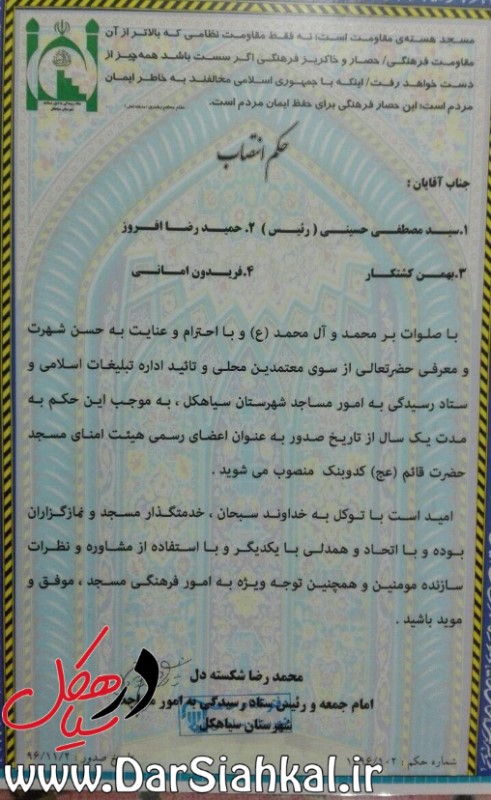 مسجد هسته‌ی مقاومت است؛ نه فقط مقاومت نظامی که بالاتر از آن
مقاومت فرهنگی/ حصار و خاکریز فرهنگی اگر سست باشد همه‌چیز از
دست خواهد رفت/ اینکه با جمهوری اسلامی مخالفند به خاطر ایمان
مردم است؛ این حصار فرهنگی برای حفظ ایمان مردم است.
حکم انتصاب
جناب آقایان :
۱.سید مصطفی حسینی ( رئیس ) ۲. حمید رضا افروز
۳.بهمن کشتکار ۴.فریدون امانی
با صلوات بر محمد و آل محمد (ع) و با احترام و عنایت به حسن شهرت
و معرفی حضرتعالی از سوی معتمدین محلی و تائید اداره تبلیغات اسلامی و
ستاد رسیدگی به امور مساجد شهرستان سیاهکل ، به موجب این حکم به
مدت یک سال از تاریخ صدور به عنوان اعضای رسمی هیئت امنای مسجد
حضرت قائم (عج) کدوبنک منصوب می شوید .
امید است با توکل به خداوند سبحان ، خدمتگذار مسجد و نمازگزاران
بوده و با اتحاد و همدلی با یکدیگر و با استفاده از مشاوره و نظرات
سازنده مومنین و همچنین توجه ویژه به امور فرهنگی مسجد ، موفق و
موید باشید .
محمد رضا شکسته دل
امام جمعه و رئیس ستاد رسیدگی به امور
شهرستان سیاهکل
شماره حکم :
صدور : ۹۶/۱۱/۲
در سیاهکل
www.DarSiahkal.ir